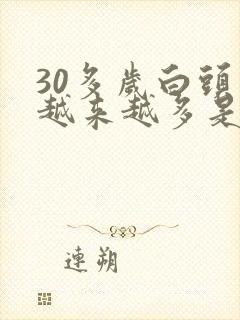 30多歲白頭
越来越多是
連朔